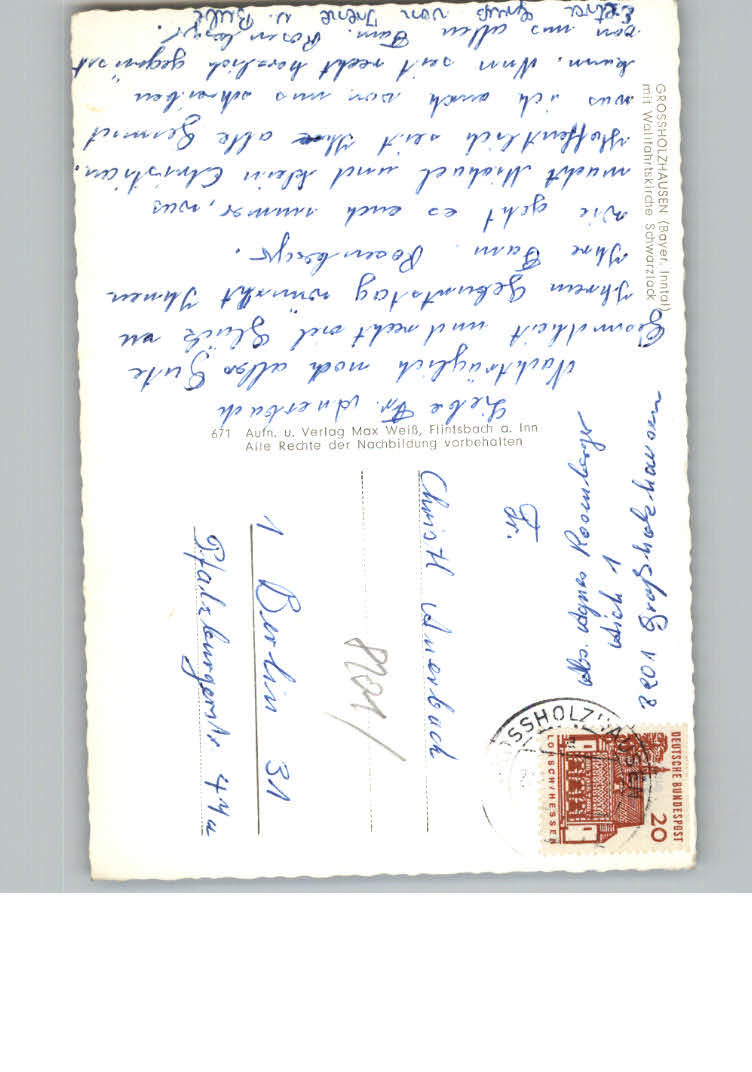 GROSSHOLZHAUSEN (Bayer. Inntal)
mit Wallfahrtskirche Schwarzlack
Liebe Fr. Auerbach
Nachträglich noch alles Gute
Gesundheit und recht viel Glück zu
Ihrem Geburtstag wünscht Ihnen
Ihre Fam. Rosenberger.
Wie geht es euch immer, was
macht Michael und klein Christian.
Hoffentlich seit Ihr alle Gesund
was ich auch von uns schreiben
kann. Nun seit recht herzlich gegrüsst
von uns allen Fam. Rosenberger.
Extra Gruß von Irene u.
671 Aufn. u. Verlag Max Weiß, Flintsbach a. Inn
Alle Rechte der Nachbildung vorbehalten
Abs. Agnes Rosenberger
Aich 1
8201 Großholzhausen
DEUTSCHE BUNDESPOST
20
LORSCH/HESSEN
GROSSHOLZHAUSEN
Fr.
Christl Auerbach
8201/
1 Berlin 31
Pfalzburgerstr 44a